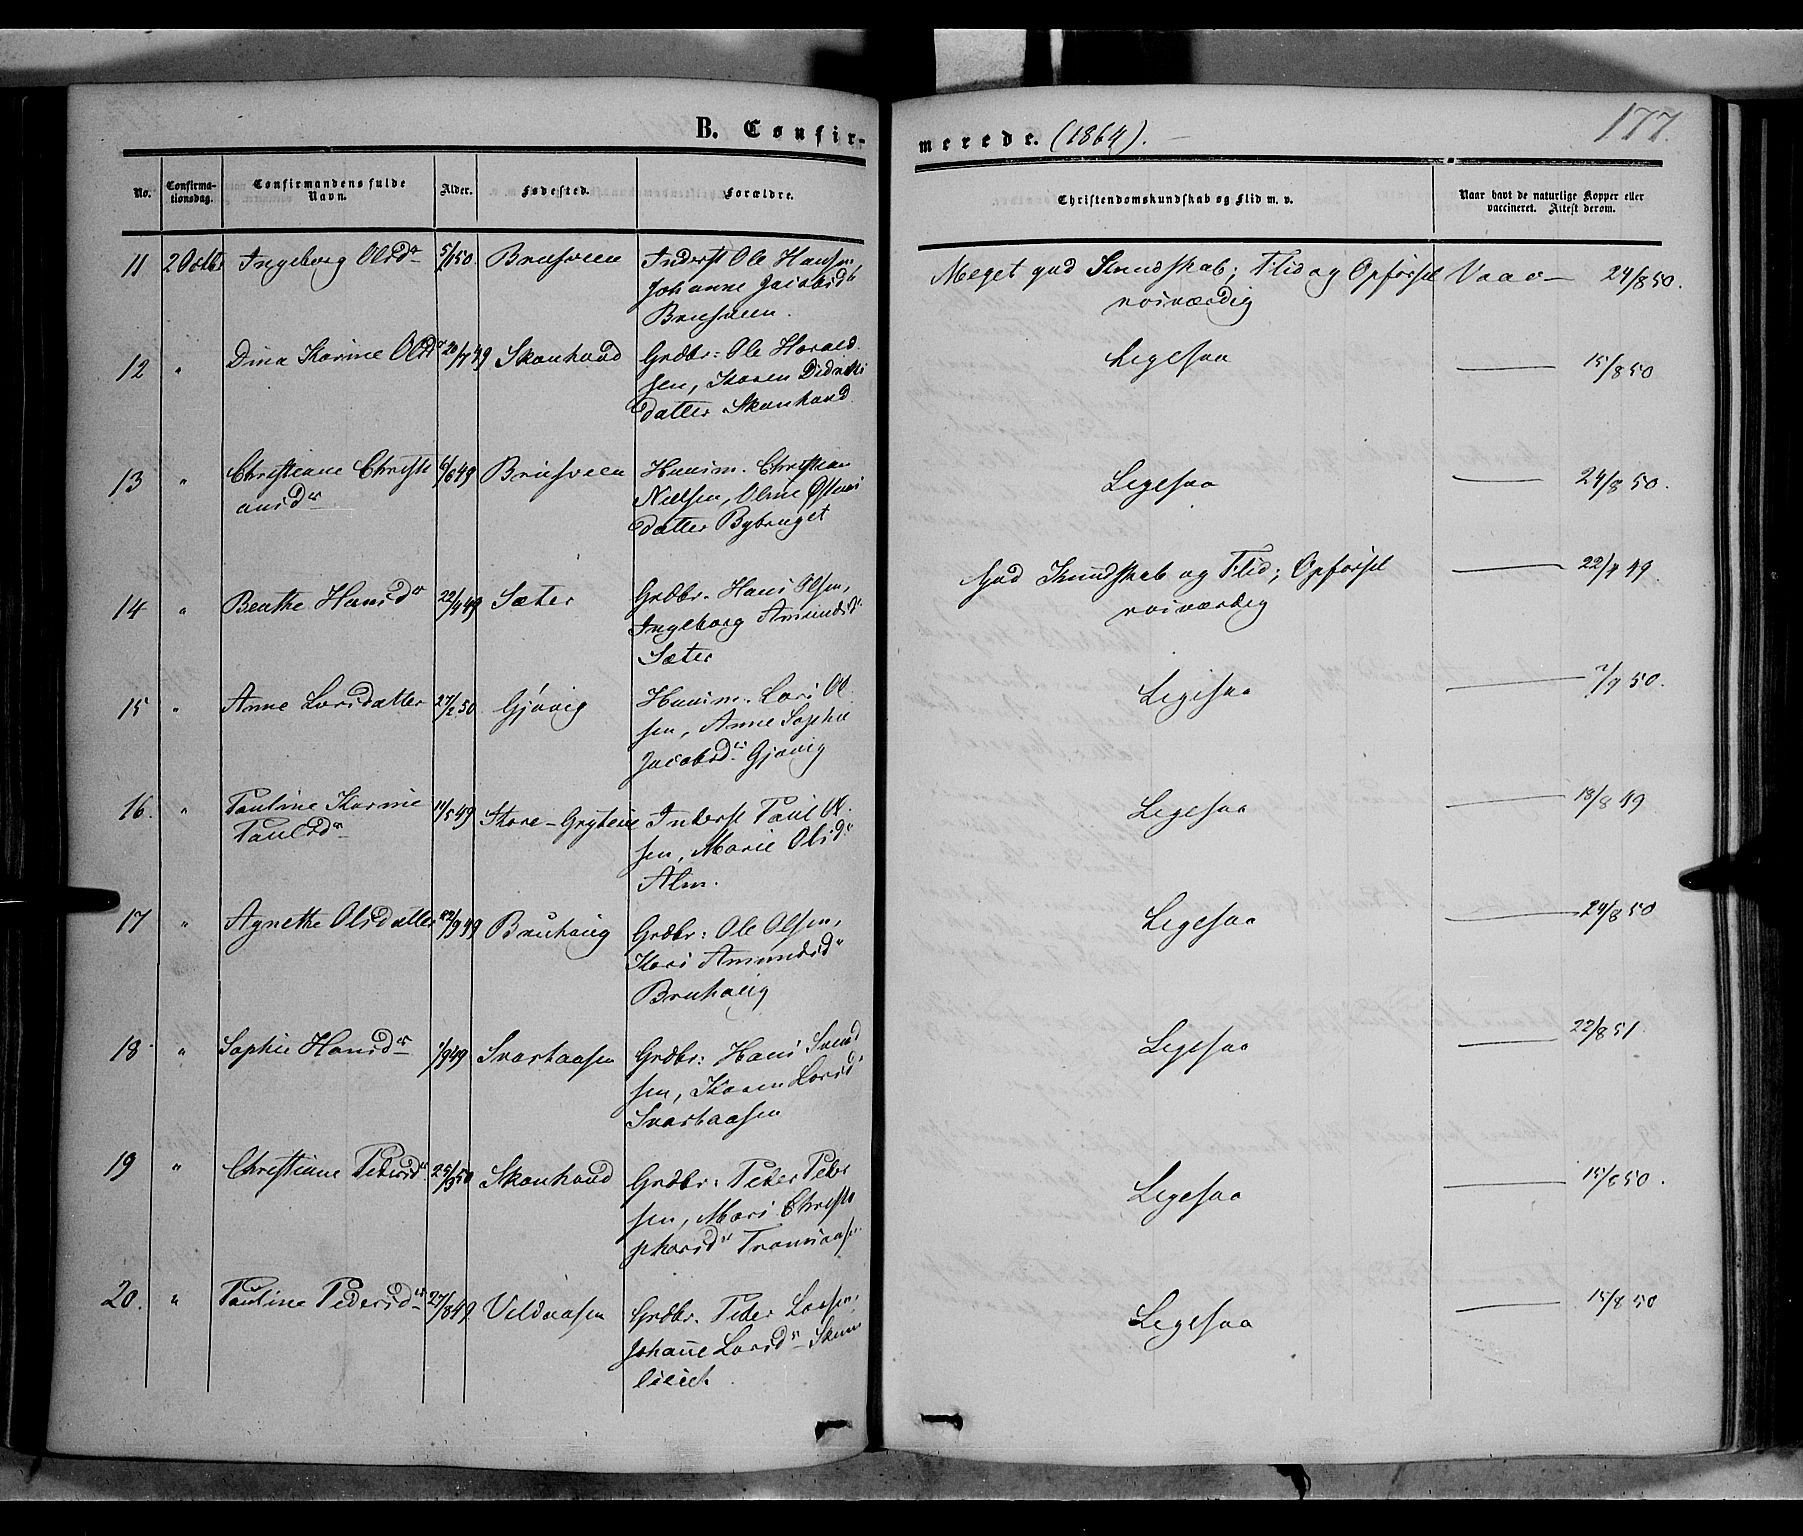 B. Confir-
merede. (1864).
177.
No.
Confirma-
tionsdag.
Confirmandens fulde
Navn.
Alder.
Fødested.
Forældre.
Christendomskundskab og Flid m. v.
Naar havt de naturlige Kopper eller
vaccineret. Attest derom.
11 2 Octbr Ingeborg Olsdr 5/1 50 BruSveen Inderst Ole Hansen,
Johanne Jacobsdr
Brusveen.
Meget god Kundskab; Flid og Opførsel Vacc— 24/8 50.
roisværdig
12 " Dina Karine Olsdr 20/7 49 Skonhovd Grdbr: Ole Harald-
sen, Karen Didriks
datter Skonhovd
Ligesaa — 15/8 50
13 " Christiane Christi
ansdr 6/6 49 Brusveen Huusm. Christian
Nielsen, Oline Østens
datter Bybruget
Ligesaa — 24/8 50.
14 " Beathe Hansdr 22/4 49 Sæter Grdbr. Hans Olsen,
Ingeborg Amundsdr
Sæter
God Kundskab og Flid; Opførsel — 22/8 49.
roisværdig
15 " Anne Larsdatter 27/2 50 Gjøvig Huusm. Lars Ol
sen, Anne Sophie
Jacobsdr Gjøvig
Ligesaa — 50.
16. " Pauline Karine
Paulsdr 11/5 49 Store-Grytene Inderst Paul Ol
sen, Marie Olsdr
Alm.
Ligesaa — 18/8 49
17 " Agnethe Olsdatter 22/9 49 Bruhaug Grdbr: Ole Olsen,
Kari Amundsdr
Bruhaug
Ligesaa — 24/8 50
18. " Sophie Hansdr 1/9 49 Svartaasen Grdbr: Hans Svend
sen, Karen Larsdr
Svartaasen
Ligesaa — 22/8 51.
19 " Christiane Pedersdr 25/3 50 Skonhovd Grdbr: Peder Peder
sen, Mari Christo
phersdr
Ligesaa — 15/8 50.
20. " Pauline Pedersdr 27/8 49 Veldaasen Grdbr. Peder Larsen,
Johanne Larsdr
Ligesaa — 15/8 50